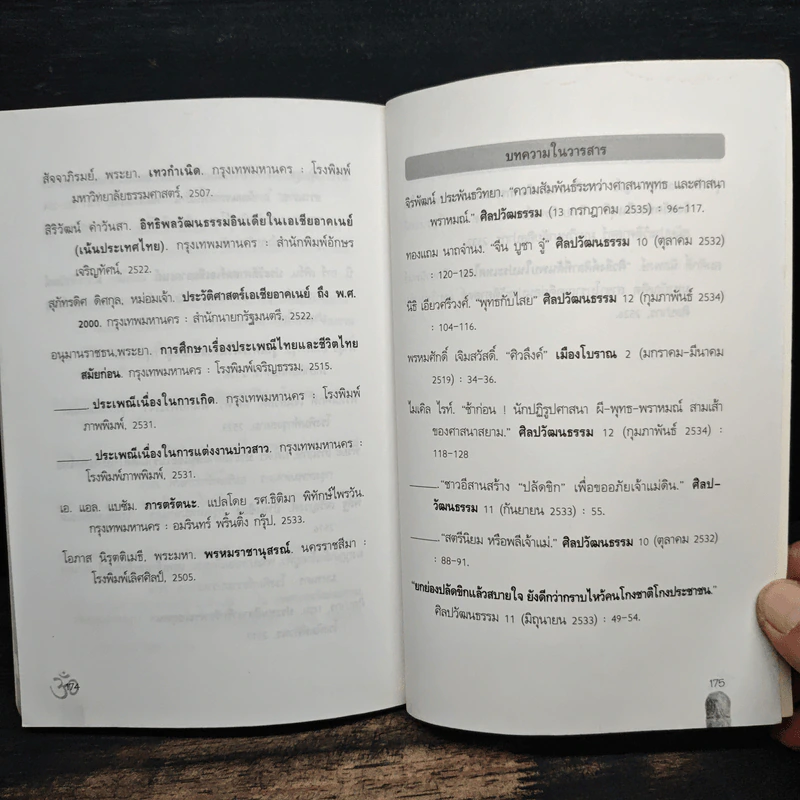 สัจจาภิรมย์, พระยา. เทวกำเนิด. กรุงเทพมหานคร : โรงพิมพ์
มหาวิทยาลัยธรรมศาสตร์, 2507.
สิริวัฒน์ คำวันสา. อิทธิพลวัฒนธรรมอินเดียในเอเชียอาคเนย์
(เน้นประเทศไทย). กรุงเทพมหานคร : สำนักพิมพ์อักษร
เจริญทัศน์, 2522.
สุภัทรดิศ ดิศกุล, หม่อมเจ้า. ประวัติศาสตร์เอเชียอาคเนย์ ถึง พ.ศ.
2000. กรุงเทพมหานคร : สำนักนายกรัฐมนตรี, 2522.
อนุมานราชธน,พระยา. การศึกษาเรื่องประเพณีไทยและชีวิตไทย
สมัยก่อน. กรุงเทพมหานคร : โรงพิมพ์เจริญธรรม, 2515.
_____ ประเพณีเนื่องในการเกิด. กรุงเทพมหานคร : โรงพิมพ์
ภาพพิมพ์, 2531.
_____ ประเพณีเนื่องในการแต่งงานบ่าวสาว. กรุงเทพมหานคร :
โรงพิมพ์ภาพพิมพ์, 2531.
เอ. แอล. แบชัม. ภารตรัตนะ. แปลโดย รศ.ธิติมา พิทักษ์ไพรวัน.
กรุงเทพมหานคร : อมรินทร์ พริ้นติ้ง กรุ๊ป, 2533.
โอภาส นิรุตติเมธี, พระมหา. พรหมราชานุสรณ์. นครราชสีมา :
โรงพิมพ์เลิศศิลป์, 2505.
174
บทความในวารสาร
จิรพัฒน์ ประพันธวิทยา. "ความสัมพันธ์ระหว่างศาสนาพุทธ และศาสนา
พราหมณ์." ศิลปวัฒนธรรม (13 กรกฎาคม 2535) : 96-117.
ทองแถม นาถจำนง. "จื่น บูชา จู๋" ศิลปวัฒนธรรม 10 (ตุลาคม 2532)
: 120-125.
นิธิ เอียวศรีวงศ์. "พุทธกับไสย" ศิลปวัฒนธรรม 12 (กุมภาพันธ์ 2534)
: 104-116.
พรหมศักดิ์ เจิมสวัสดิ์. "ศิวลึงค์" เมืองโบราณ 2 (มกราคม-มีนาคม
2519) : 34-36.
ไมเคิล ไรท์. "ช้าก่อน ! นักปฏิรูปศาสนา ผี-พุทธ-พราหมณ์ สามเส้า
ของศาสนาสยาม." ศิลปวัฒนธรรม 12 (กุมภาพันธ์ 2534) :
118-128
_____ "ชาวอีสานสร้าง "ปลัดขิก" เพื่อขออภัยเจ้าแม่ดิน." ศิลป-
วัฒนธรรม 11 (กันยายน 2533) : 55.
_____ "สตรีนิยม หรือพลีเจ้าแม่." ศิลปวัฒนธรรม 10 (ตุลาคม 2532)
: 88-91.
"ยกย่องปลัดขิกแล้วสบายใจ ยังดีกว่ากราบไหว้คนโกงชาติโกงประชาชน."
ศิลปวัฒนธรรม 11 (มิถุนายน 2533) : 49-54.
175